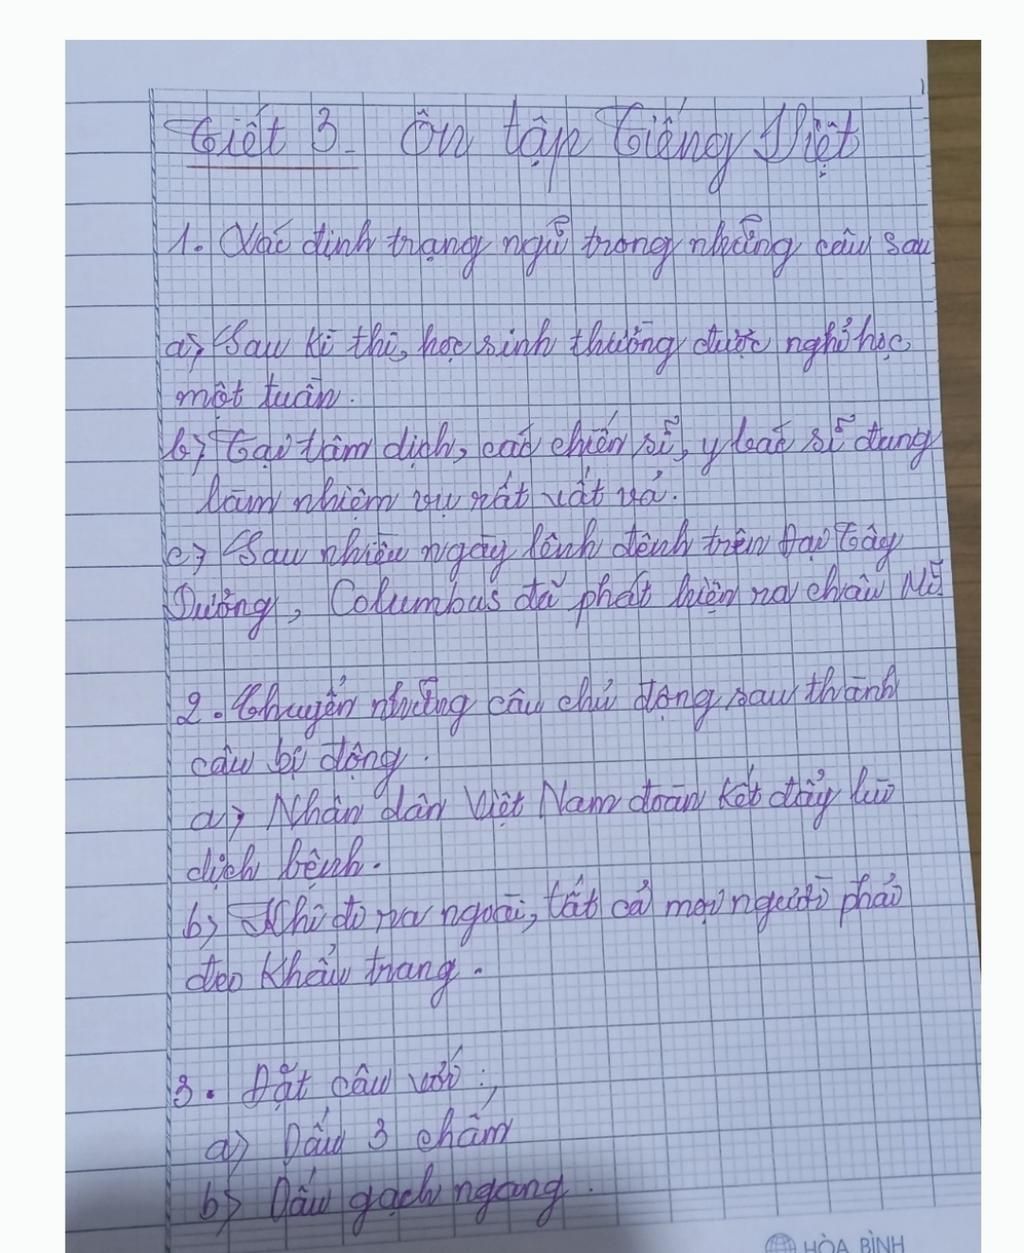 Tiết 3. Ôn tập Tiếng Việt
1. Xác định trạng ngữ trong những câu sau
a) Sau kì thi, học sinh thường được nghỉ học
một tuần.
b) Tại tâm dịch, các chiến sĩ, y bác sĩ đang
làm nhiệm vụ rất vất vả.
c) Sau nhiều ngày lênh đênh trên Đại Tây
Dương, Columbus đã phát hiện ra châu Mĩ.
2. Chuyển những câu chủ động sau thành
câu bị động.
a) Nhân dân Việt Nam đoàn kết đẩy lùi
dịch bệnh.
b) Khi đi ra ngoài, tất cả mọi người phải
đeo khẩu trang.
3. Đặt câu với:
a) Dấu 3 chấm
b) Dấu gạch ngang.
HÒA BÌNH